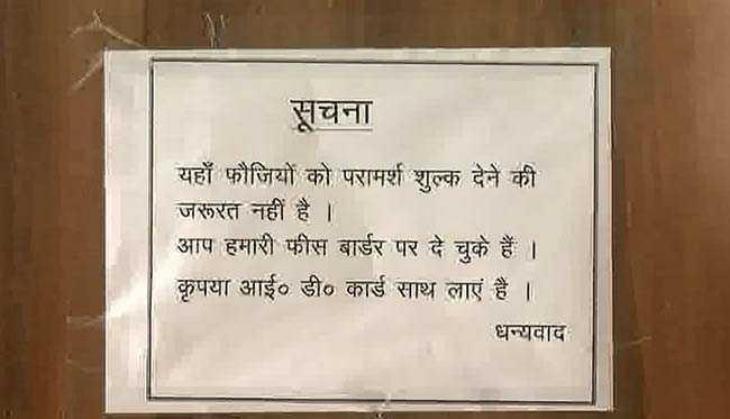 सूचना
यहाँ फौजियों को परामर्श शुल्क देने की
जरूरत नहीं है ।
आप हमारी फीस बार्डर पर दे चुके हैं ।
कृपया आई० डी० कार्ड साथ लाएं है ।
धन्यवाद